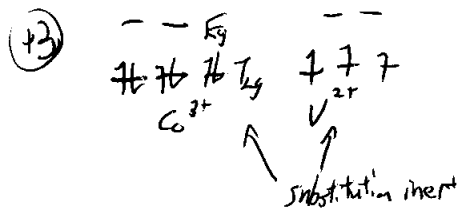 +3
Eg
T2g
Co3+ V2+
substitution inert